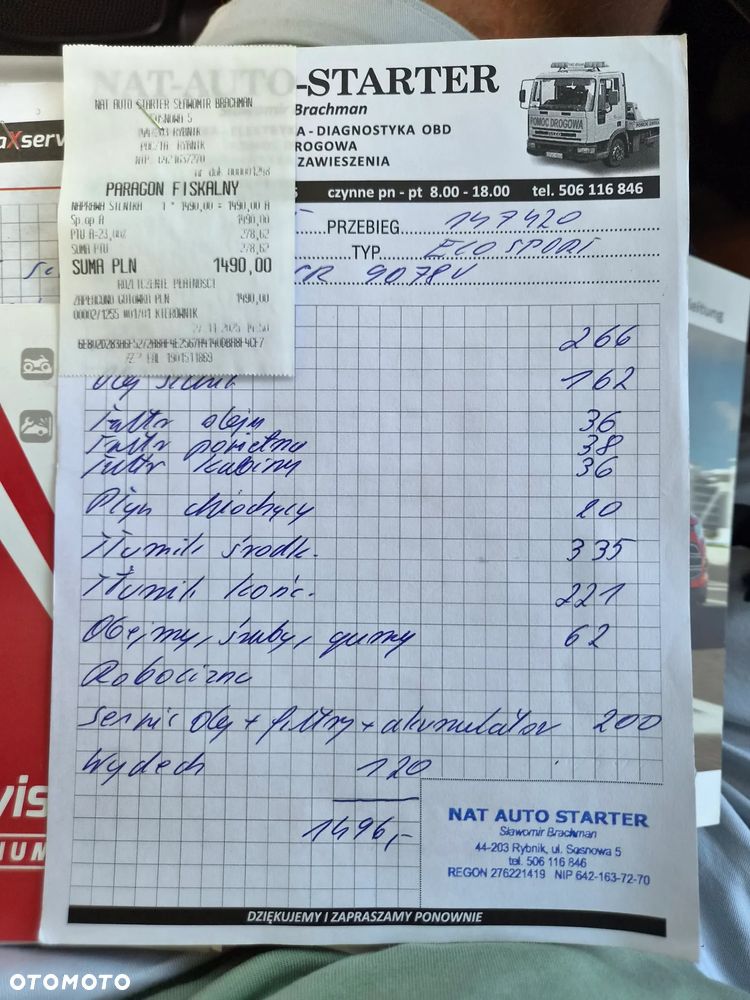 NAT-AUTO-STARTER
Sławomir Brachman
KA - DIAGNOSTYKA OBD
DROGOWA
ZAWIESZENIA
POMOC DROGOWA
czynne pn - pt 8.00 - 18.00 tel. 506 116 846
PRZEBIEG 147420
TYP ECO SPORT
9078V
NAT AUTO STARTER SŁAWOMIR BRACHMAN
SOSNOWA 5
44-203 RYBNIK
POCZTA RYBNIK
NIP: 6421637270
nr dok. 000001298
PARAGON FISKALNY
NAPRAWA SILNIKA 1 * 1490,00 = 1490,00 A
Sp.op A 1490,00
PTU A=23,00% 278,62
SUMA PTU 278,62
SUMA PLN 1490,00
ROZLICZENIE PŁATNOŚCI
ZAPŁACONO GOTÓWKA PLN 1490,00
00002/1255 #01/01 KIEROWNIK
27-11-2025 14:50
EAL 1901511869
266
Olej silnik 162
Filtr oleju 36
Filtr powietrza 38
Filtr kabiny 36
Płyn chłodzący 20
Tłumik środk. 335
Tłumik końc. 221
Obejmy, śruby, gumy 62
Robocizna
Serwis olej + filtry + akumulator 200
Wydech 120
1496,-
NAT AUTO STARTER
Sławomir Brachman
44-203 Rybnik, ul. Sosnowa 5
tel. 506 116 846
REGON 276221419 NIP 642-163-72-70
DZIĘKUJEMY I ZAPRASZAMY PONOWNIE
OTOMOTO